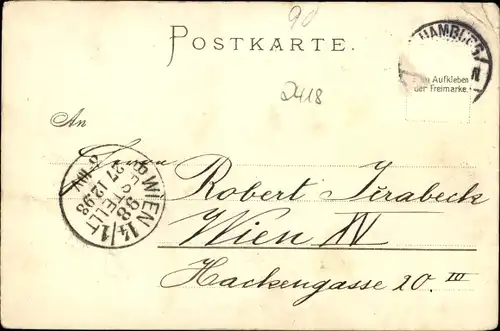 90
POSTKARTE.
HAMBURG
Aufkleben
der Freimarke.
2418
An
Herrn
Robert Jirabeck
Wien IV
Hackengasse 20. III
WIEN 14/1
98
BESTELLT
27.12.98
8 1/2 V